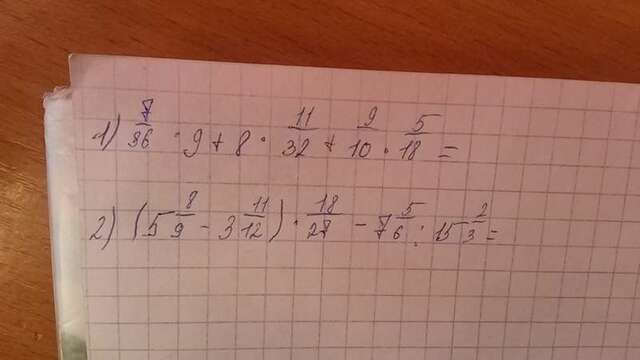 1) 7/36 · 9 + 8 · 11/32 + 9/10 · 5/18 =
2) (5 8/9 - 3 11/12) · 18/27 - 7 5/6 : 15 2/3 =